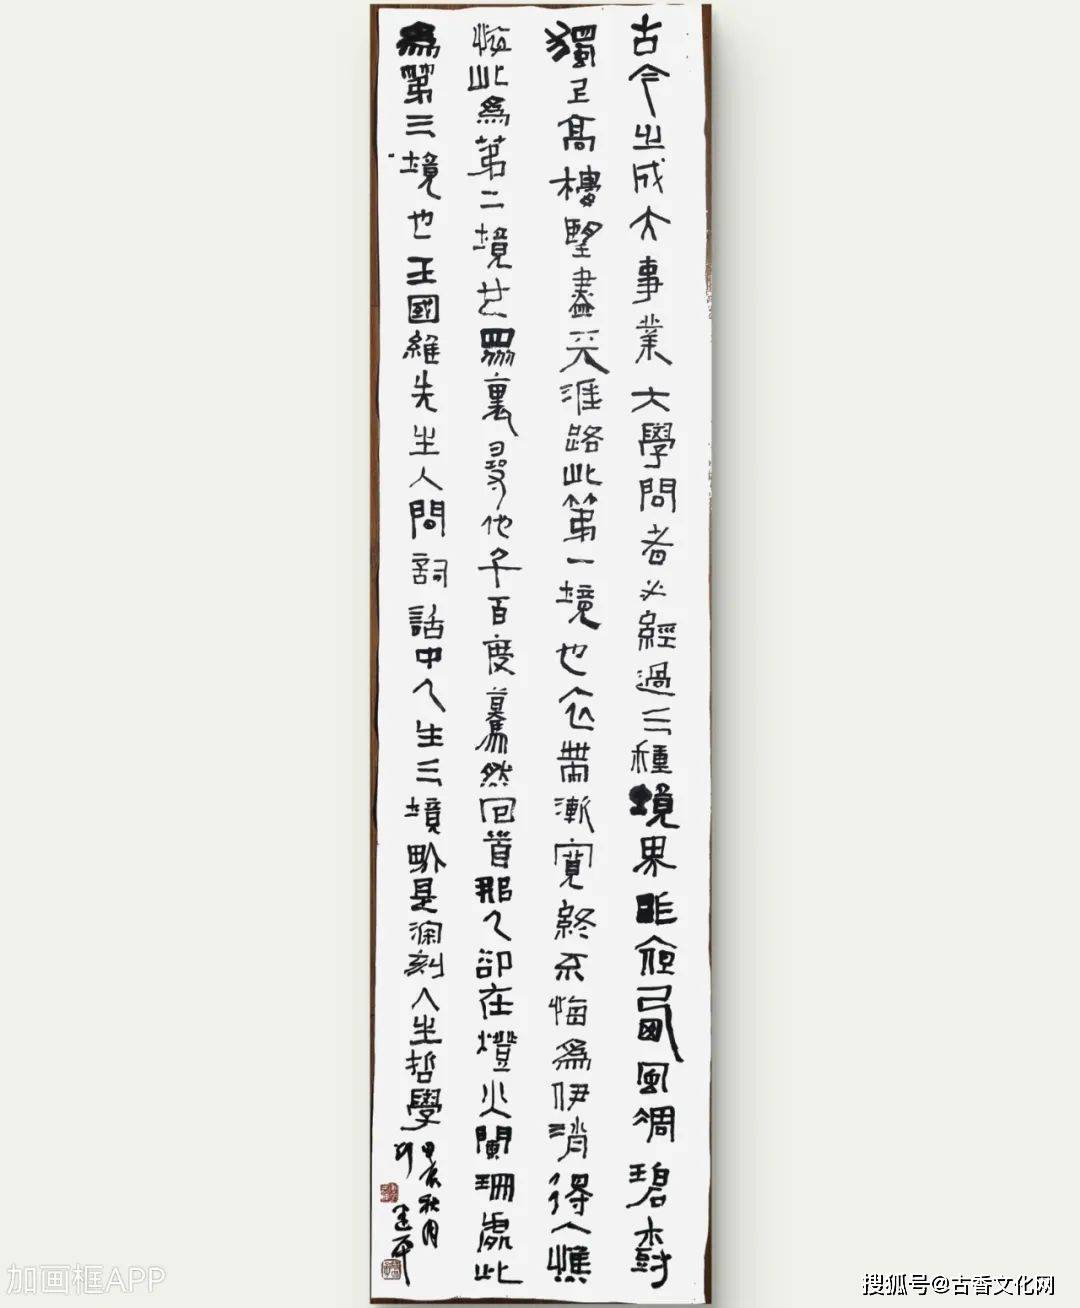 古今之成大事業大學問者必經過三種境界昨夜西風凋碧樹
獨上高樓望盡天涯路此第一境也衣帶漸寬終不悔爲伊消得人憔
悴此爲第二境也眾裏尋他千百度驀然回首那人卻在燈火闌珊處此
爲第三境也王國維先生人間詞話中人生三境界是深刻人生哲學
甲辰秋月
加画框APP
搜狐号@古香文化网